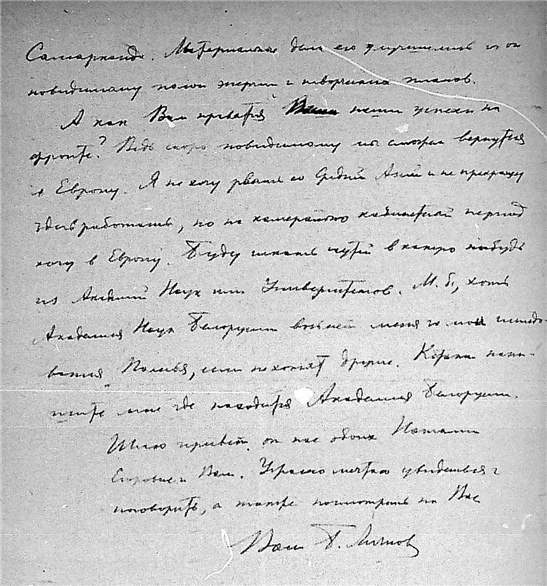 Самарканде. Материальные дела его улучшились и он
повидимому полон энергии и творческих планов.
А как Вам нравятся наши успехи на
фронте? Ведь скоро повидимому мы сможем вернуться
в Европу. Я не хочу рвать со Средней Азией и не прекращу
здесь работать, но на камерально кабинетный период
хочу в Европу. Буду искать путей в какую нибудь
из Академий Наук или Университетов. М. б., хоть
Академия Наук Белоруссии возьмет меня за мои исследо-
вания Полесья, если не хотят другие. Кстати напи-
шите мне где находится Академия Белоруссии.
Шлю привет от нас обоих Наталии
Егоровне и Вам. Ужасно мечтаю увидеться и
поговорить, а также посмотреть на Вас
Ваш Б. Личков